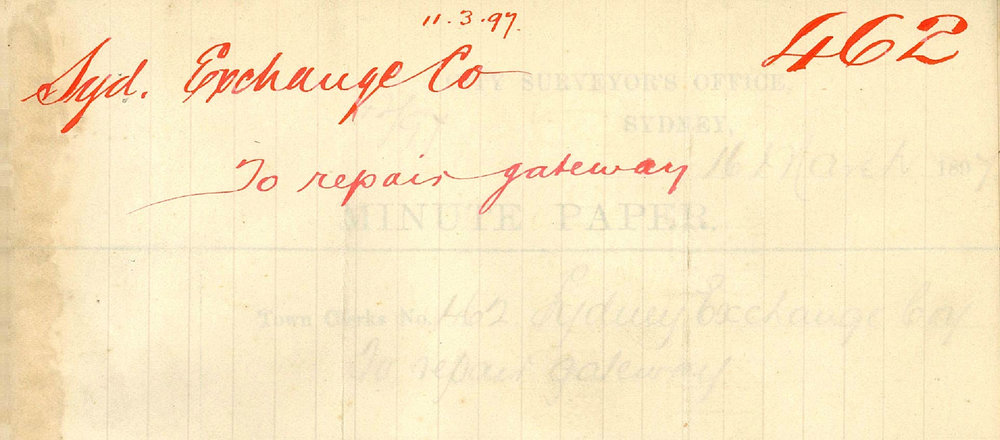 11.3.97.
462
Syd. Exchange Co
CITY SURVEYOR'S OFFICE,
SYDNEY,
To repair gateway
16 March 1897
MINUTE PAPER.
Town Clerks No. 462 Sydney Exchange Coy
To repair gateway